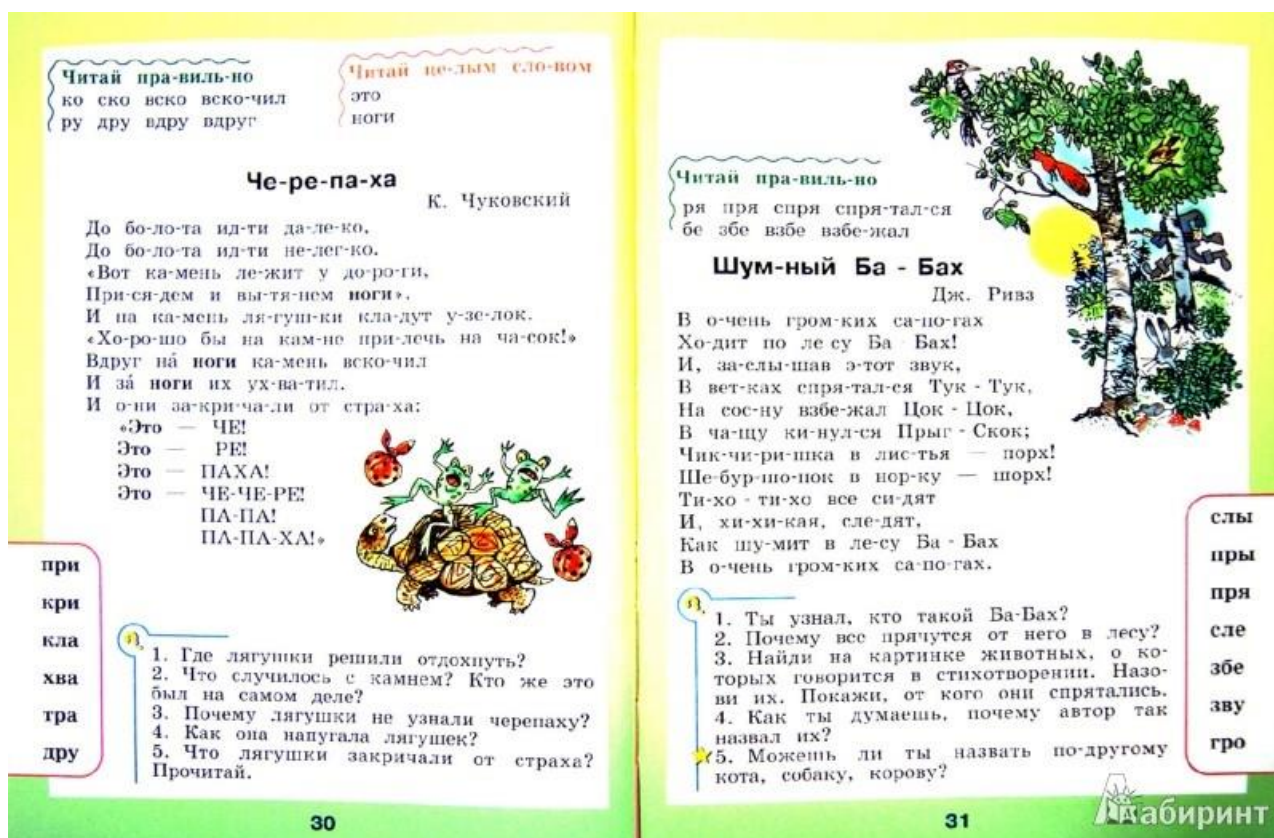 Читай пра-виль-но
ко ско вско вско-чил
ру дру вдру вдруг
Читай це-лым сло-вом
это
ноги
Че-ре-па-ха
К. Чуковский
До бо-ло-та ид-ти да-ле-ко,
До бо-ло-та ид-ти не-лег-ко.
«Вот ка-мень ле-жит у до-ро-ги,
При-ся-дем и вы-тя-нем ноги».
И на ка-мень ля-гуш-ки кла-дут у-зе-лок.
«Хо-ро-шо бы на кам-не при-лечь на ча-сок!»
Вдруг на́ ноги ка-мень вско-чил
И за́ ноги их ух-ва-тил.
И о-ни за-кри-ча-ли от стра-ха:
«Это — ЧЕ!
Это — РЕ!
Это — ПАХА!
Это — ЧЕ-ЧЕ-РЕ!
ПА-ПА!
ПА-ПА-ХА!»
при
кри
кла
хва
тра
дру
1. Где лягушки решили отдохнуть?
2. Что случилось с камнем? Кто же это
был на самом деле?
3. Почему лягушки не узнали черепаху?
4. Как она напугала лягушек?
5. Что лягушки закричали от страха?
Прочитай.
30
Читай пра-виль-но
ря пря спря спря-тал-ся
бе збе взбе взбе-жал
Шум-ный Ба - Бах
Дж. Ривз
В о-чень гром-ких са-по-гах
Хо-дит по ле-су Ба - Бах!
И, за-слы-шав э-тот звук,
В вет-ках спря-тал-ся Тук - Тук,
На сос-ну взбе-жал Цок - Цок,
В ча-щу ки-нул-ся Прыг - Скок;
Чик-чи-ри-шка в лис-тья — порх!
Ше-бур-шо-нок в нор-ку — шорх!
Ти-хо - ти-хо все си-дят
И, хи-хи-кая, сле-дят,
Как шу-мит в ле-су Ба - Бах
В о-чень гром-ких са-по-гах.
слы
пры
пря
сле
збе
зву
гро
1. Ты узнал, кто такой Ба-Бах?
2. Почему все прячутся от него в лесу?
3. Найди на картинке животных, о ко-
торых говорится в стихотворении. Назо-
ви их. Покажи, от кого они спрятались.
4. Как ты думаешь, почему автор так
назвал их?
5. Можешь ли ты назвать по-другому
кота, собаку, корову?
31
Лабиринт